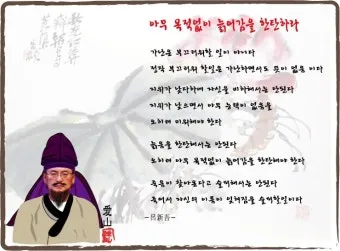 아무 목적없이 늙어감을 한탄하라
가난은 부끄러워할 일이 아니다
정작 부끄러워 할일은 가난하면서도 뜻이 없음 이다
지위가 낮다하여 자신을 비하해서는 안된다
지위가 낮으면서 아무 능력이 없음을
오히려 미워해야 한다
늙음을 한탄해서는 안된다
오히려 아무 목적없이 늙어감을 한탄해야 한다
죽음이 찾아온다고 슬퍼해서는 안된다
죽어서 자신의 이름이 잊혀짐을 슬퍼할일이다
-呂新吾-
愛山